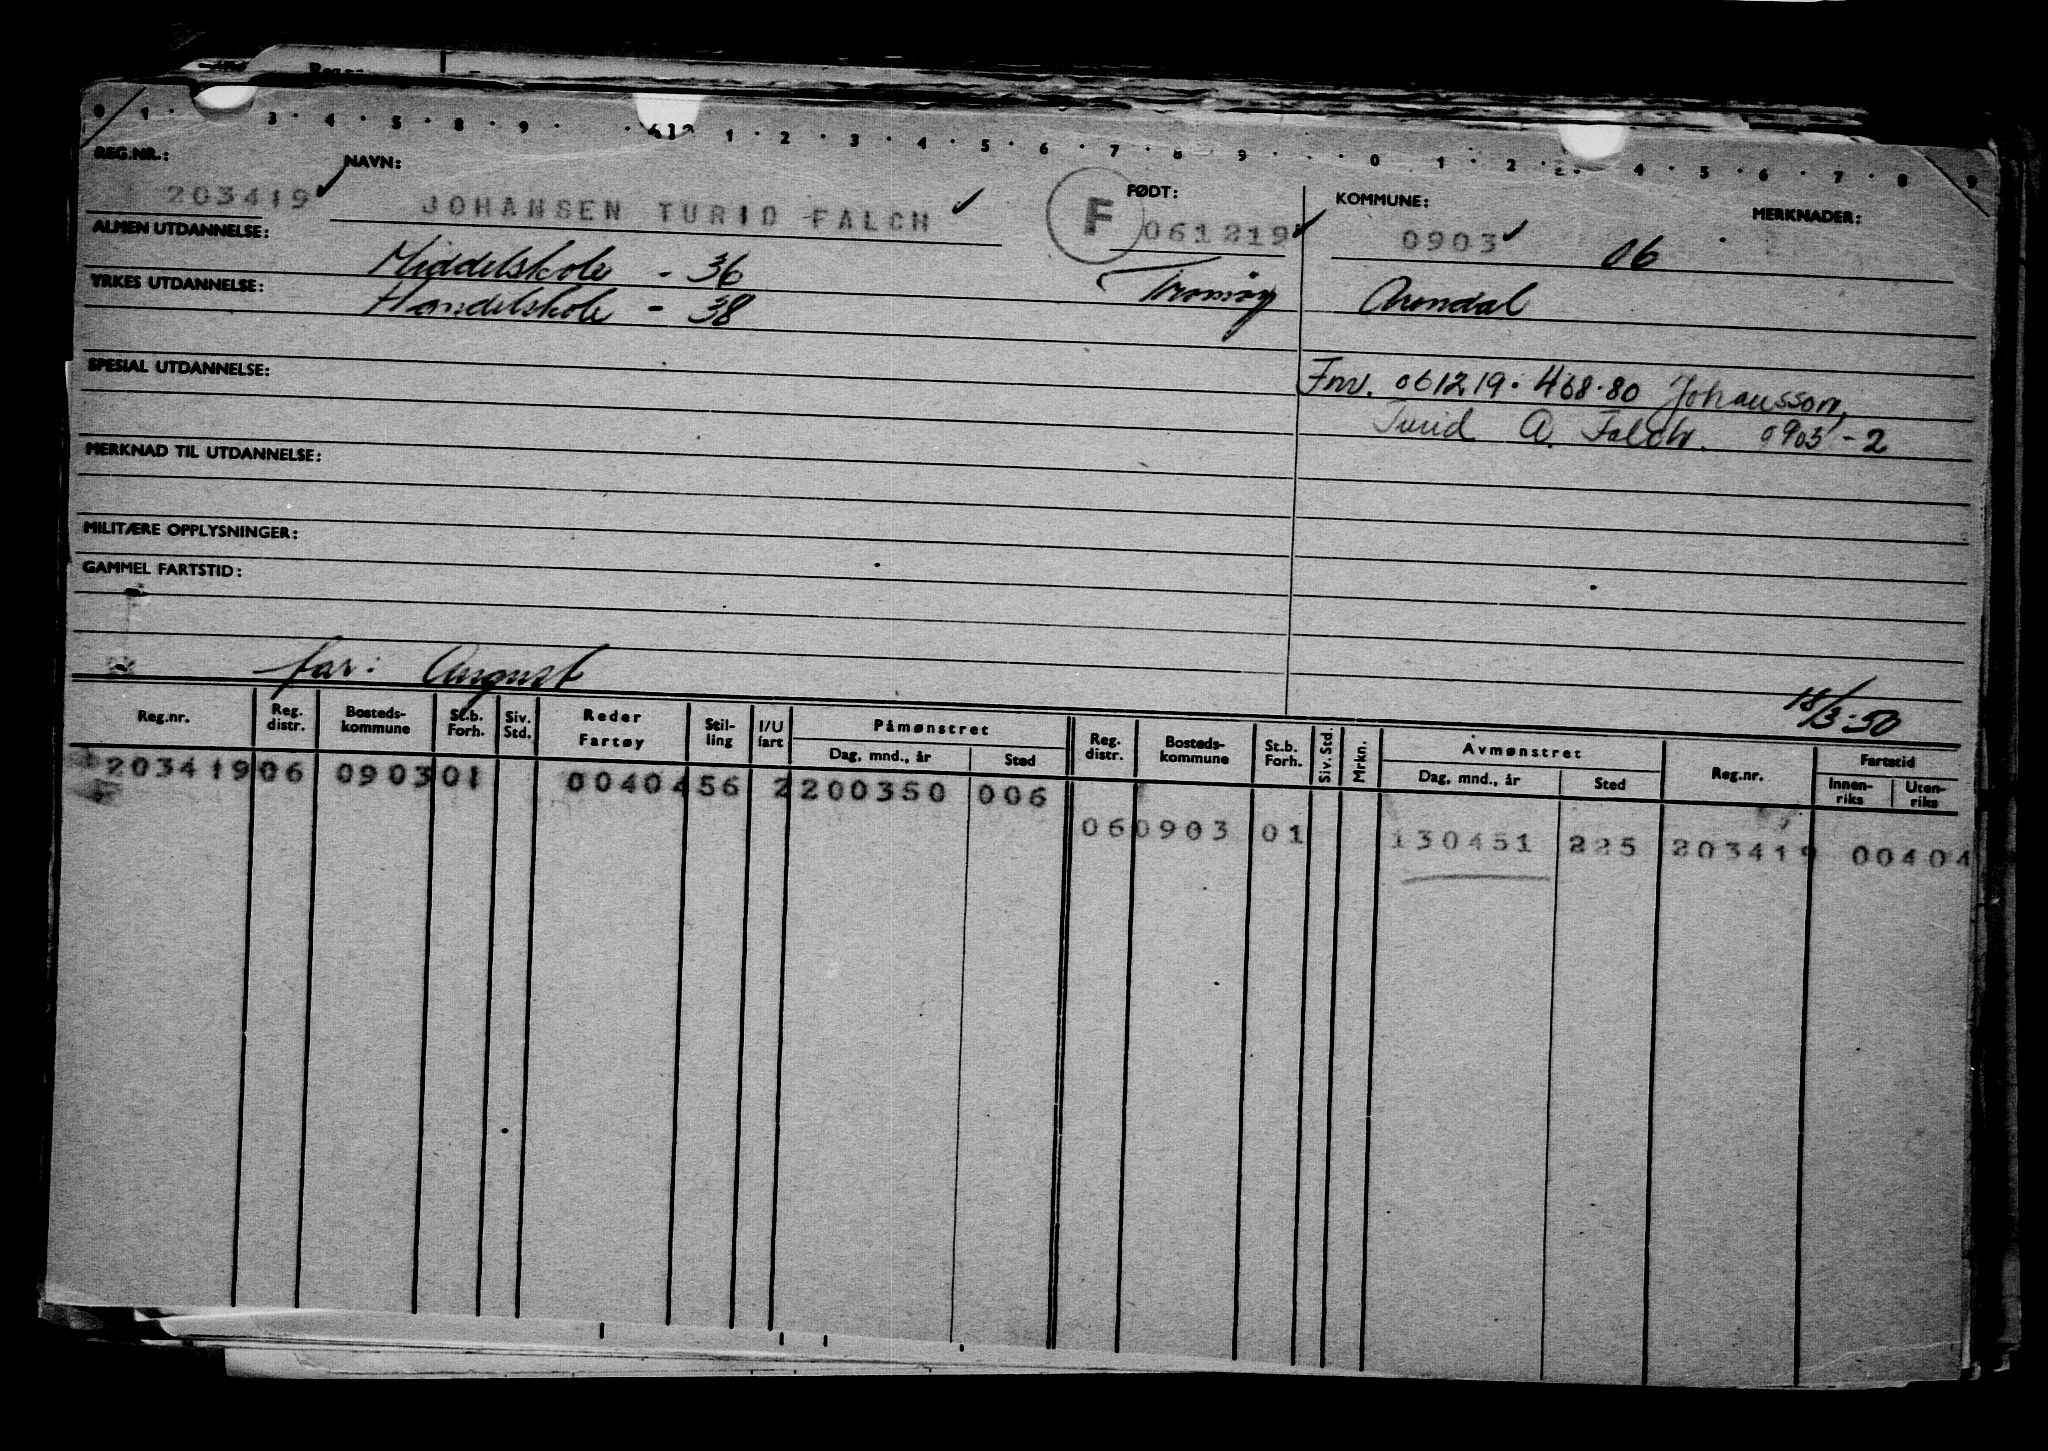 REG.NR.: NAVN: FØDT: KOMMUNE: MERKNADER:
203419 JOHANSEN TURID FALCH F 061219 0903 06
ALMEN UTDANNELSE: Middelskole - 36 Tromøy Arendal
YRKES UTDANNELSE: Handelskole - 38
SPESIAL UTDANNELSE:
Fnr. 061219.468.80 Johansson,
Turid A. Falch. 0903 - 2
MERKNAD TIL UTDANNELSE:
MILITÆRE OPPLYSNINGER:
GAMMEL FARTSTID:
far: August
18/3-50
Reg.nr. Reg. distr. Bosteds-kommune St.b. Forh. Siv. Std. Reder Fartøy Stil-ling I/U fart Påmønstret Dag, mnd., år Sted Reg. distr. Bosteds-kommune St.b. Forh. Siv. Std. Mrkn. Avmønstret Dag, mnd., år Sted Reg.nr. Fartstid Innen-riks Uten-riks
203419 06 0903 01 00404 56 2 200350 006
06 0903 01 130451 225 203419 00404